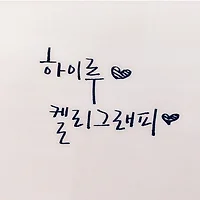 하이루♥
켈리그래피♥